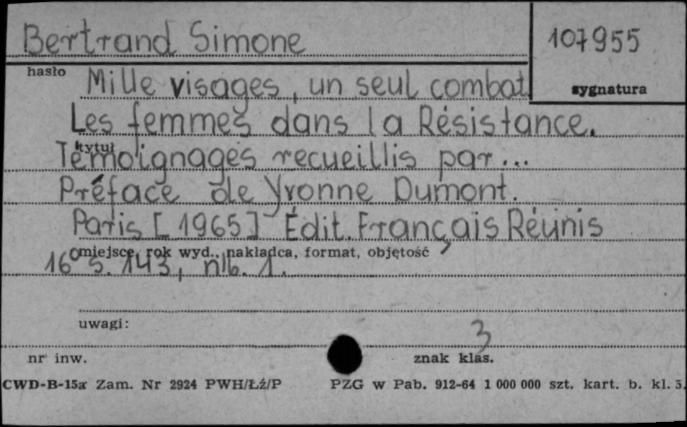 Bertrand Simone
107955
hasło
sygnatura
Mille visages, un seul combat
Les femmes dans la Résistance.
tytuł
Témoignages recueillis par...
Préface de Yvonne Dumont.
Paris [1965] Édit. Français Réunis
miejsce, rok wyd., nakładca, format, objętość
16° s. 143, nlb. 1.
uwagi:
3
nr inw.
znak klas.
CWD-B-15a Zam. Nr 2924 PWH/Łź/P
PZG w Pab. 912-64 1 000 000 szt. kart. b. kl. 3.